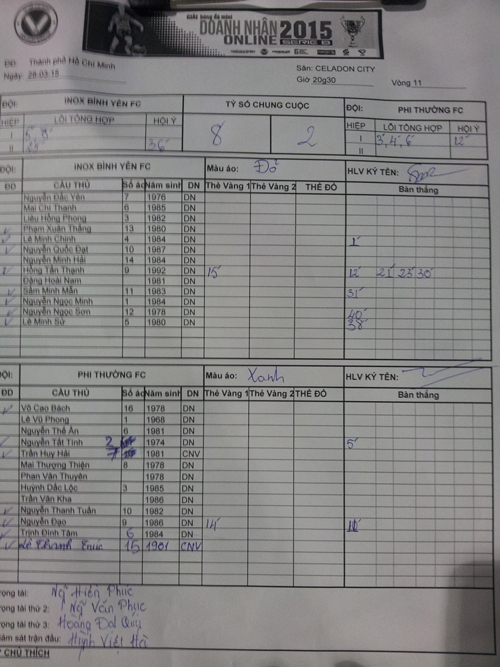 GIẢI bóng đá mini
DOANH NHÂN 2015
ONLINE SERIE B
ĐĐ: Thành phố Hồ Chí Minh
Ngày: 28.03.15
Sân: CELADON CITY
Giờ 20g30 Vòng 11
ĐỘI: INOX BÌNH YÊN FC TỶ SỐ CHUNG CUỘC ĐỘI: PHI THƯỜNG FC
HIỆP LỖI TỔNG HỢP HỘI Ý 8 2 HIỆP LỖI TỔNG HỢP HỘI Ý
I I 3, 4, 6 12
II 36 II
ĐỘI: INOX BÌNH YÊN FC Màu áo: Đỏ HLV KÝ TÊN:
ĐD CẦU THỦ Số áo Năm sinh DN Thẻ Vàng 1 Thẻ Vàng 2 THẺ ĐỎ Bàn thắng
Nguyễn Đắc Yên 7 1976 DN
Mai Chí Thanh 6 1985 DN
Liêu Hồng Phong 3 1982 DN
Phạm Xuân Thắng 13 1980 DN
Lê Minh Chinh 4 1984 DN 1
Nguyễn Quốc Đạt 10 1987 DN
Nguyễn Minh Hải 14 1984 DN
Hồng Tấn Thạnh 9 1992 DN 15 12 21 23 30
Đặng Hoài Nam 1981 DN
Sầm Minh Mẫn 11 1983 DN 31
Nguyễn Ngọc Minh 1 1984 DN
Nguyễn Ngọc Sơn 12 1978 DN 40
Lê Minh Sử 5 1980 DN 38
ĐỘI: PHI THƯỜNG FC Màu áo: Xanh HLV KÝ TÊN:
ĐD CẦU THỦ Số áo Năm sinh DN Thẻ Vàng 1 Thẻ Vàng 2 THẺ ĐỎ Bàn thắng
Võ Cao Bách 16 1978 DN
Lê Vũ Phong 1 1968 DN
Nguyễn Thế Ân 6 1981 DN
Nguyễn Tất Tình 2 1974 DN 5
Trần Huy Hải 7 1981 CNV
Mai Thượng Thiện 8 1978 DN
Phan Văn Thuyên 1978 DN
Huỳnh Đắc Lộc 3 1985 DN
Trần Văn Kha 1986 DN
Nguyễn Thanh Tuấn 10 1982 DN
Nguyễn Đạo 9 1986 DN 14
Trịnh Đình Tâm 6 1984 DN
Lê Thanh 15 1981 CNV
Trọng tài: Ng Hiến Phúc
Trọng tài thứ 2: Ng Văn Phúc
Trọng tài thứ 3: Hoàng Đại Quý
Giám sát trận đấu: Huỳnh Việt Hà
* CHÚ THÍCH